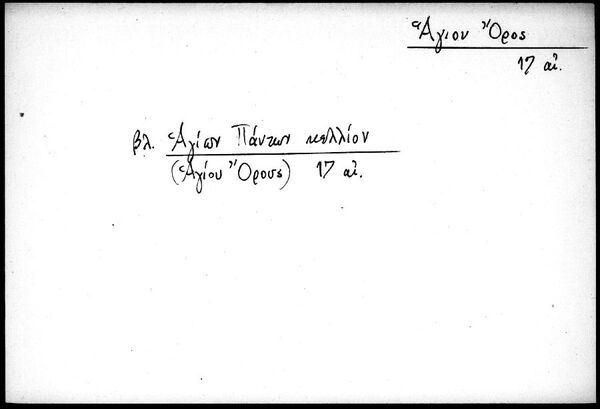 Ἅγιον Ὄρος
17 αἰ.
βλ. Ἁγίων Πάντων κελλίον
(Ἁγίου Ὄρους) 17 αἰ.